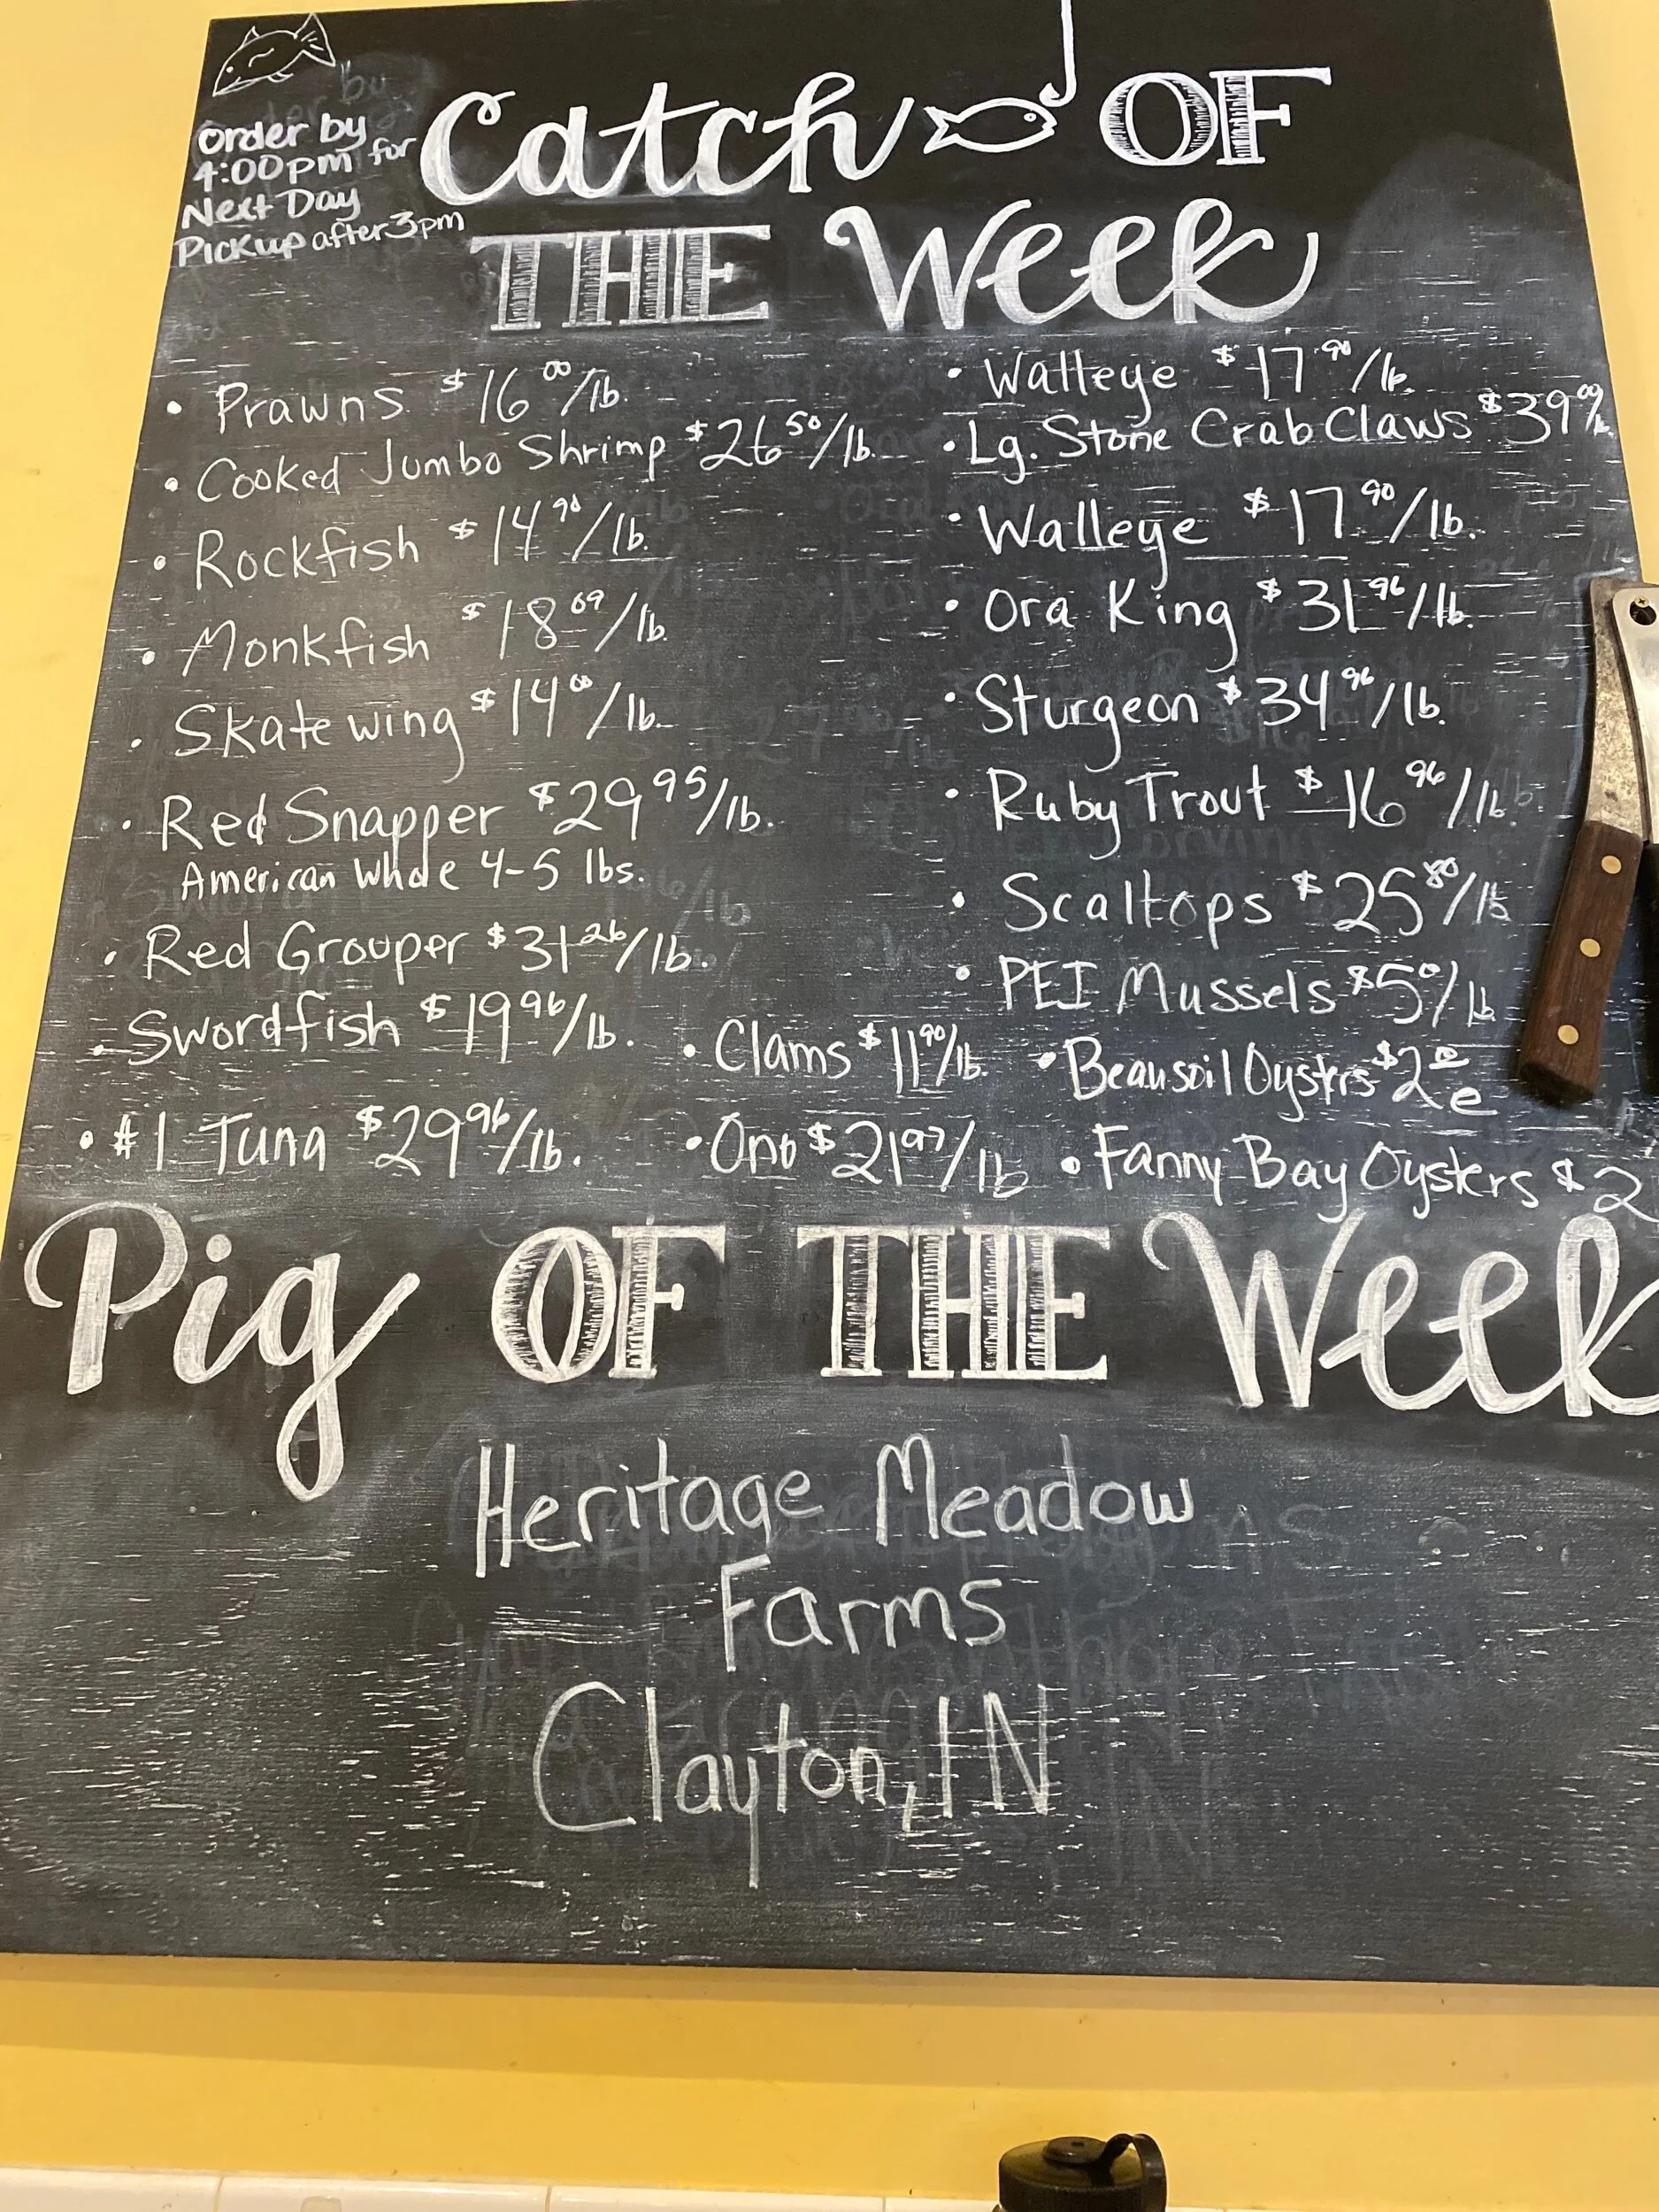 Order by
4:00pm for
Next Day
Pickup after 3pm
Catch OF
THE Week
• Prawns $16.00/lb.
• Cooked Jumbo Shrimp $26.50/lb.
• Rockfish $14.90/lb.
• Monkfish $18.69/lb.
• Skate wing $14.00/lb.
• Red Snapper $29.95/lb.
American Whole 4-5 lbs.
• Red Grouper $31.26/lb.
• Swordfish $19.96/lb.
• #1 Tuna $29.96/lb.
• Walleye $17.90/lb.
• Lg. Stone Crab Claws $39.00/lb.
• Walleye $17.90/lb.
• Ora King $31.96/lb.
• Sturgeon $34.96/lb.
• Ruby Trout $16.96/lb
• Scallops $25.80/lb
• PEI Mussels $5.01/lb
• Clams $11.90/lb.
• Beausoil Oysters $2.00 e
• Ono $21.97/lb
• Fanny Bay Oysters $2
Pig OF THE Week
Heritage Meadow
Farms
Clayton, IN